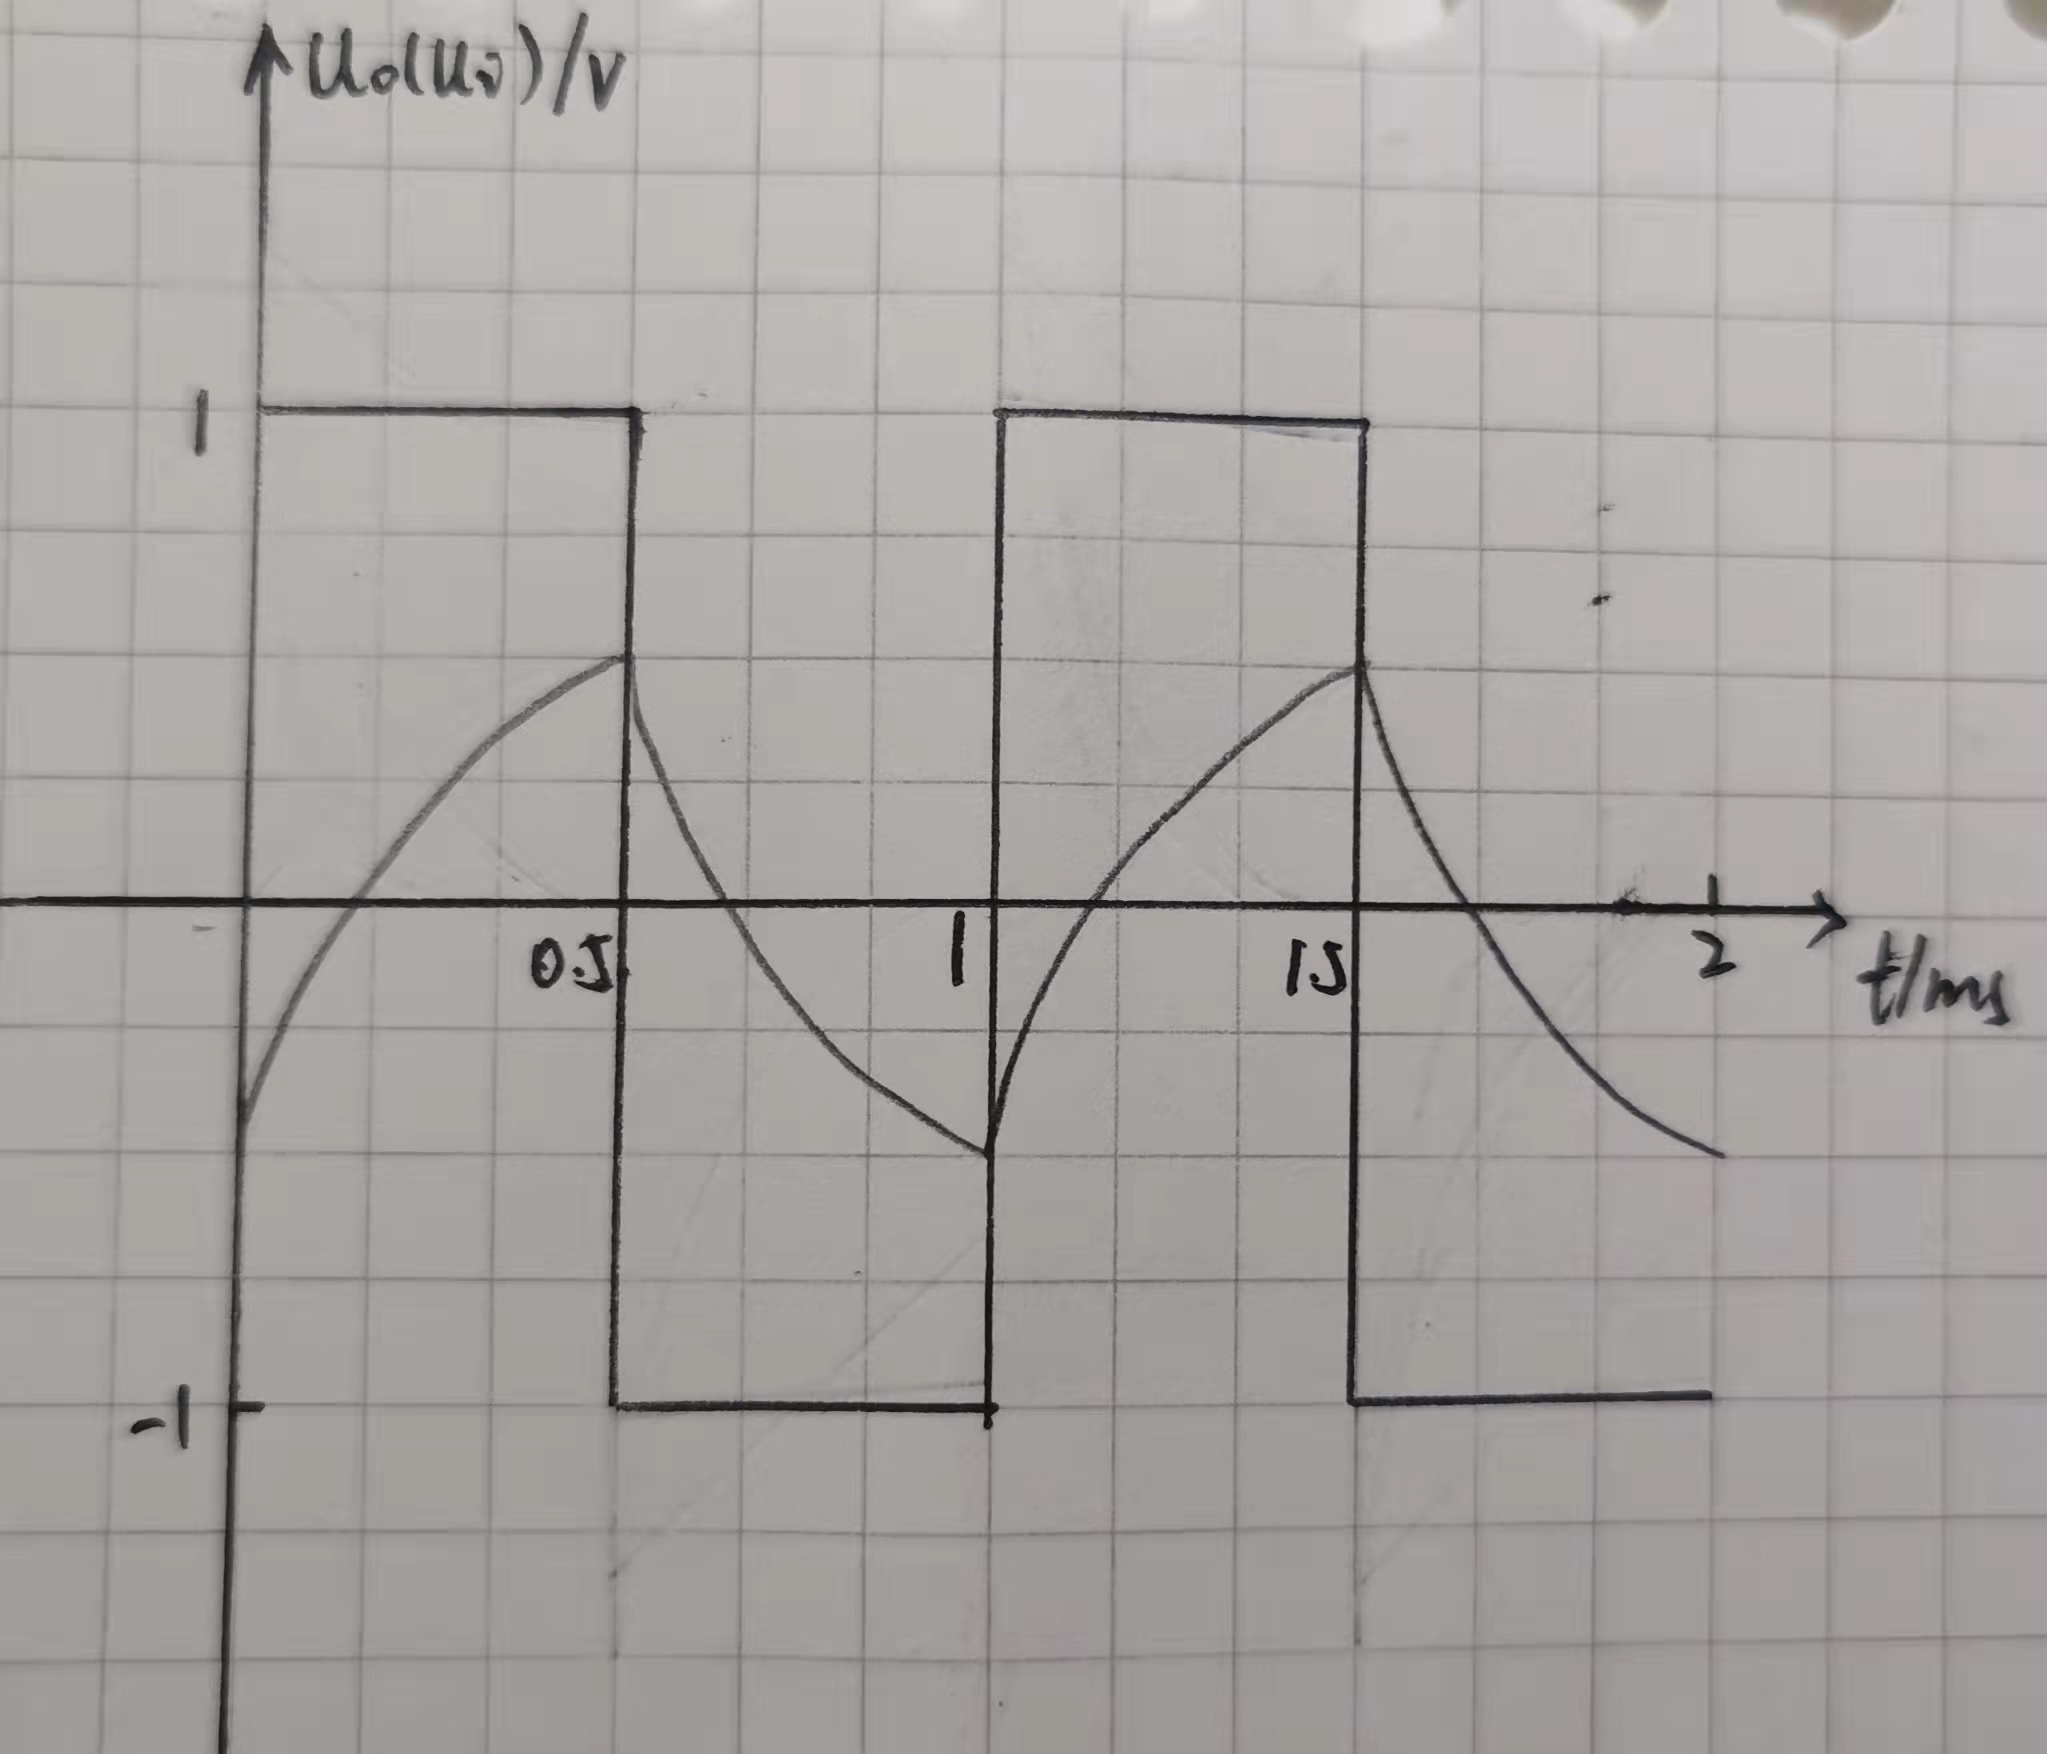 u₀(uᵢ)/V
1
0.5
1
1.5
2
t/ms
-1